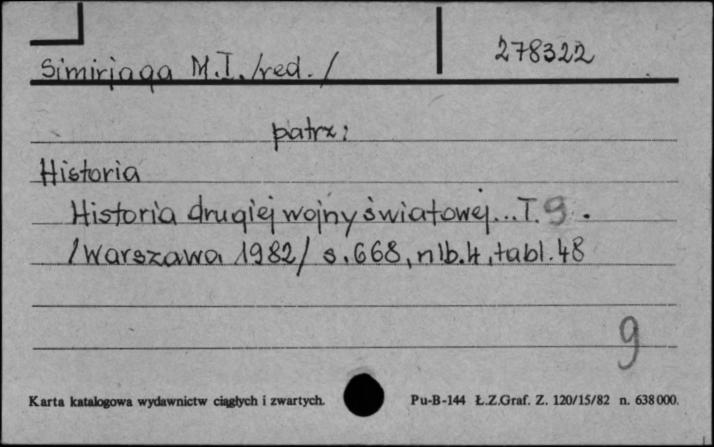 278322
Simirjaga M.I. /red./
patrz:
Historia
Historia drugiej wojny światowej...T. 9.
/Warszawa 1982/ s.668, nlb.4, tabl.48
9
Karta katalogowa wydawnictw ciągłych i zwartych. Pu-B-144 Ł.Z.Graf. Z. 120/15/82 n. 638000.